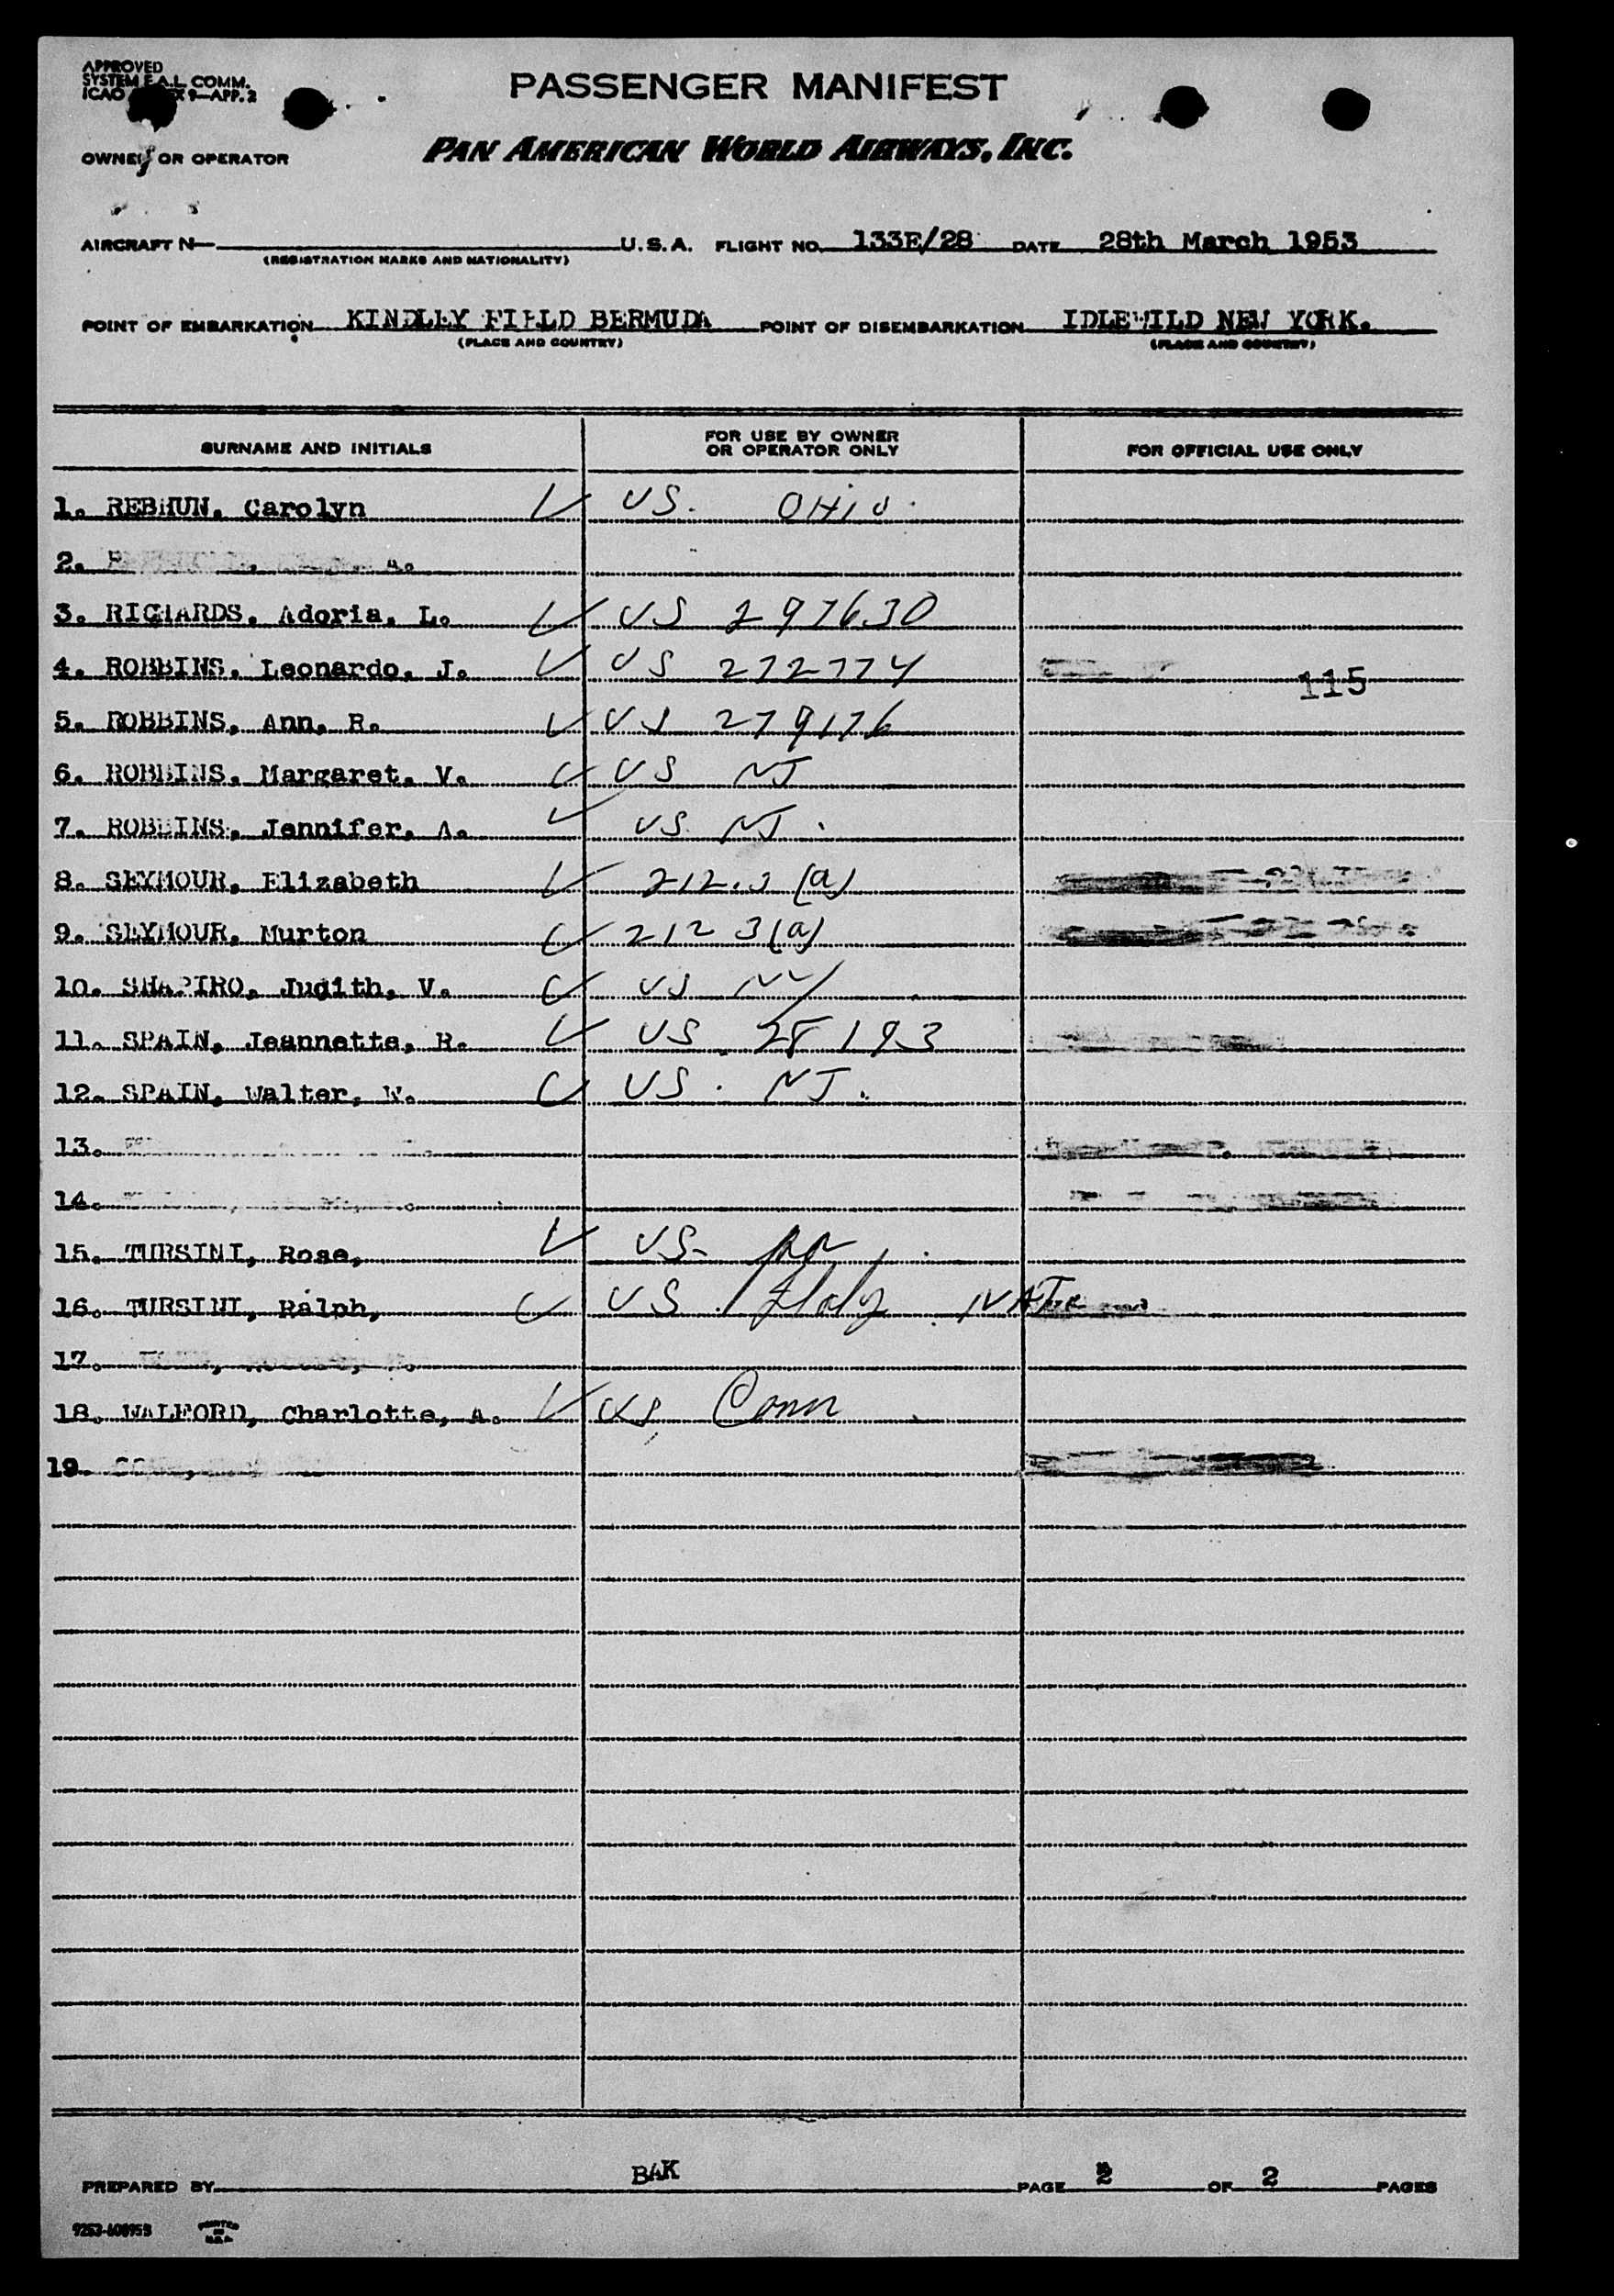 APPROVED
SYSTEM F.A.L. COMM.
ICAO 9—APP. 2
PASSENGER MANIFEST
OWNER OR OPERATOR PAN AMERICAN WORLD AIRWAYS, INC.
AIRCRAFT N— U.S.A. FLIGHT NO. 133E/28 DATE 28th March 1953
(REGISTRATION MARKS AND NATIONALITY)
POINT OF EMBARKATION KINDLEY FIELD BERMUDA POINT OF DISEMBARKATION IDLEWILD NEW YORK.
(PLACE AND COUNTRY) (PLACE AND COUNTRY)
SURNAME AND INITIALS FOR USE BY OWNER OR OPERATOR ONLY FOR OFFICIAL USE ONLY
1. REBHUN, Carolyn ✓ US. OHIO.
2. A.
3. RICHARDS, Adoria, L. ✓ US 297630
4. ROBBINS, Leonardo, J. ✓ US 272774
115
5. ROBBINS, Ann, R. ✓ US 279176
6. ROBBINS, Margaret, V. ✓ US NJ
7. ROBBINS, Jennifer, A. ✓ US NJ.
8. SEYMOUR, Elizabeth ✓ 212.3 (a)
9. SEYMOUR, Murton ✓ 212 3(a)
10. SHAPIRO, Judith, V. ✓ US NY
11. SPAIN, Jeannette, R. ✓ US 28193
12. SPAIN, Walter, W. ✓ US. NJ.
13.
14.
15. TURSINI, Rose, ✓ US-
16. TURSINI, Ralph, ✓ US Italy NAT
17.
18. WALFORD, Charlotte, A. ✓ US, Conn
19.
PREPARED BY BAK PAGE 2 OF 2 PAGES
PRINTED IN U.S.A.